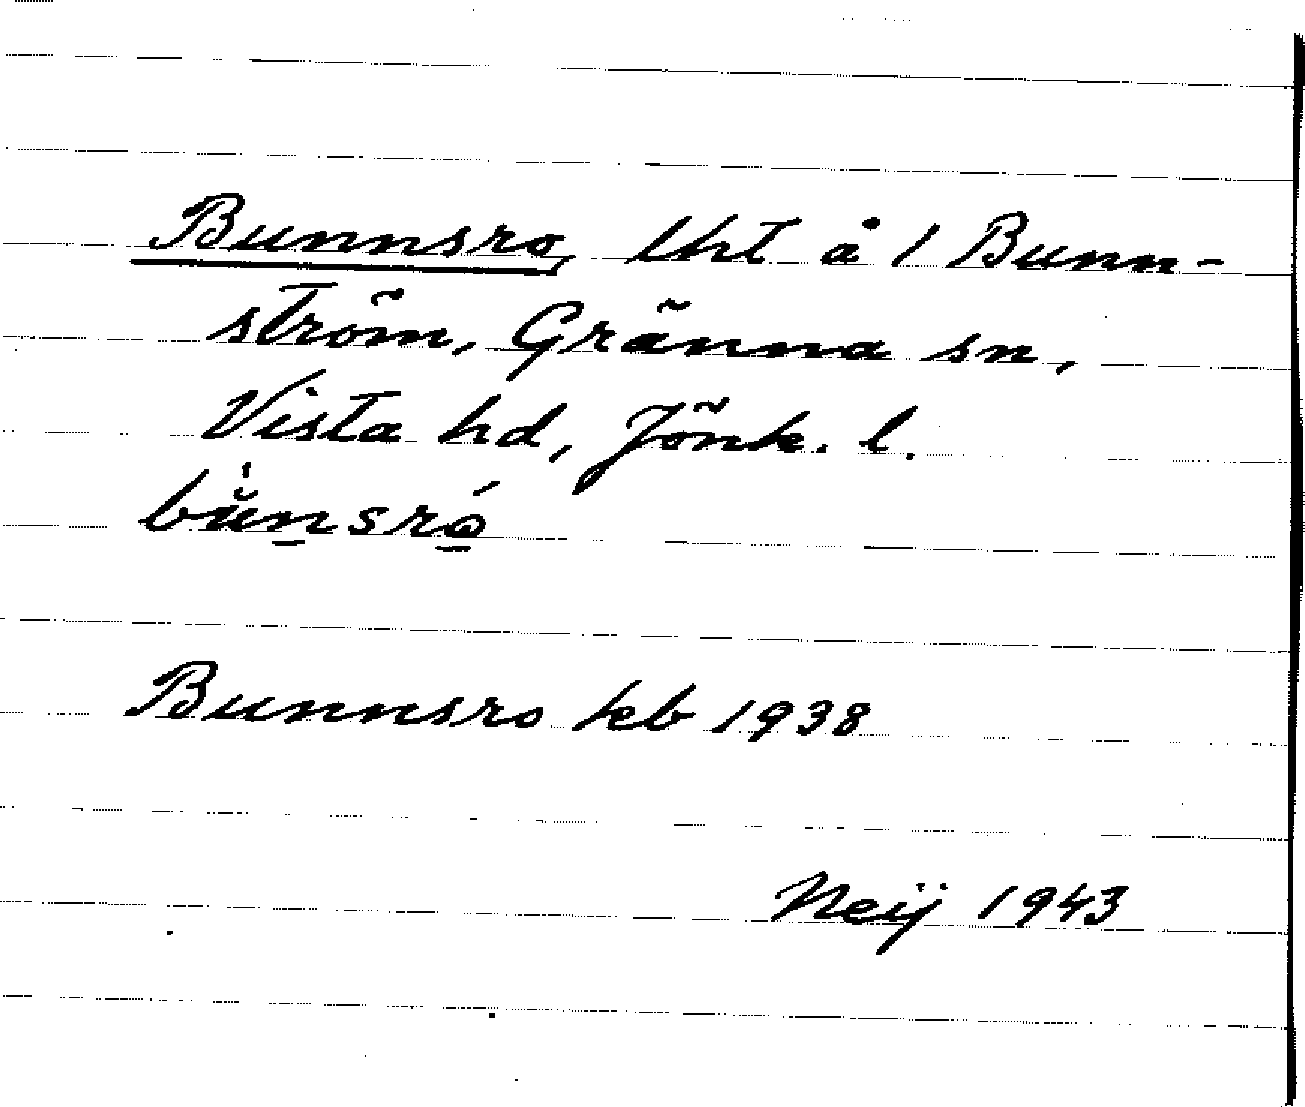 Bunnsro, lht å 1 Bunn-
ström, Gränna sn,
Vista hd, Jönk. l.
bŭ̍n̠sró̠
Bunnsro kb 1938
Neij 1943